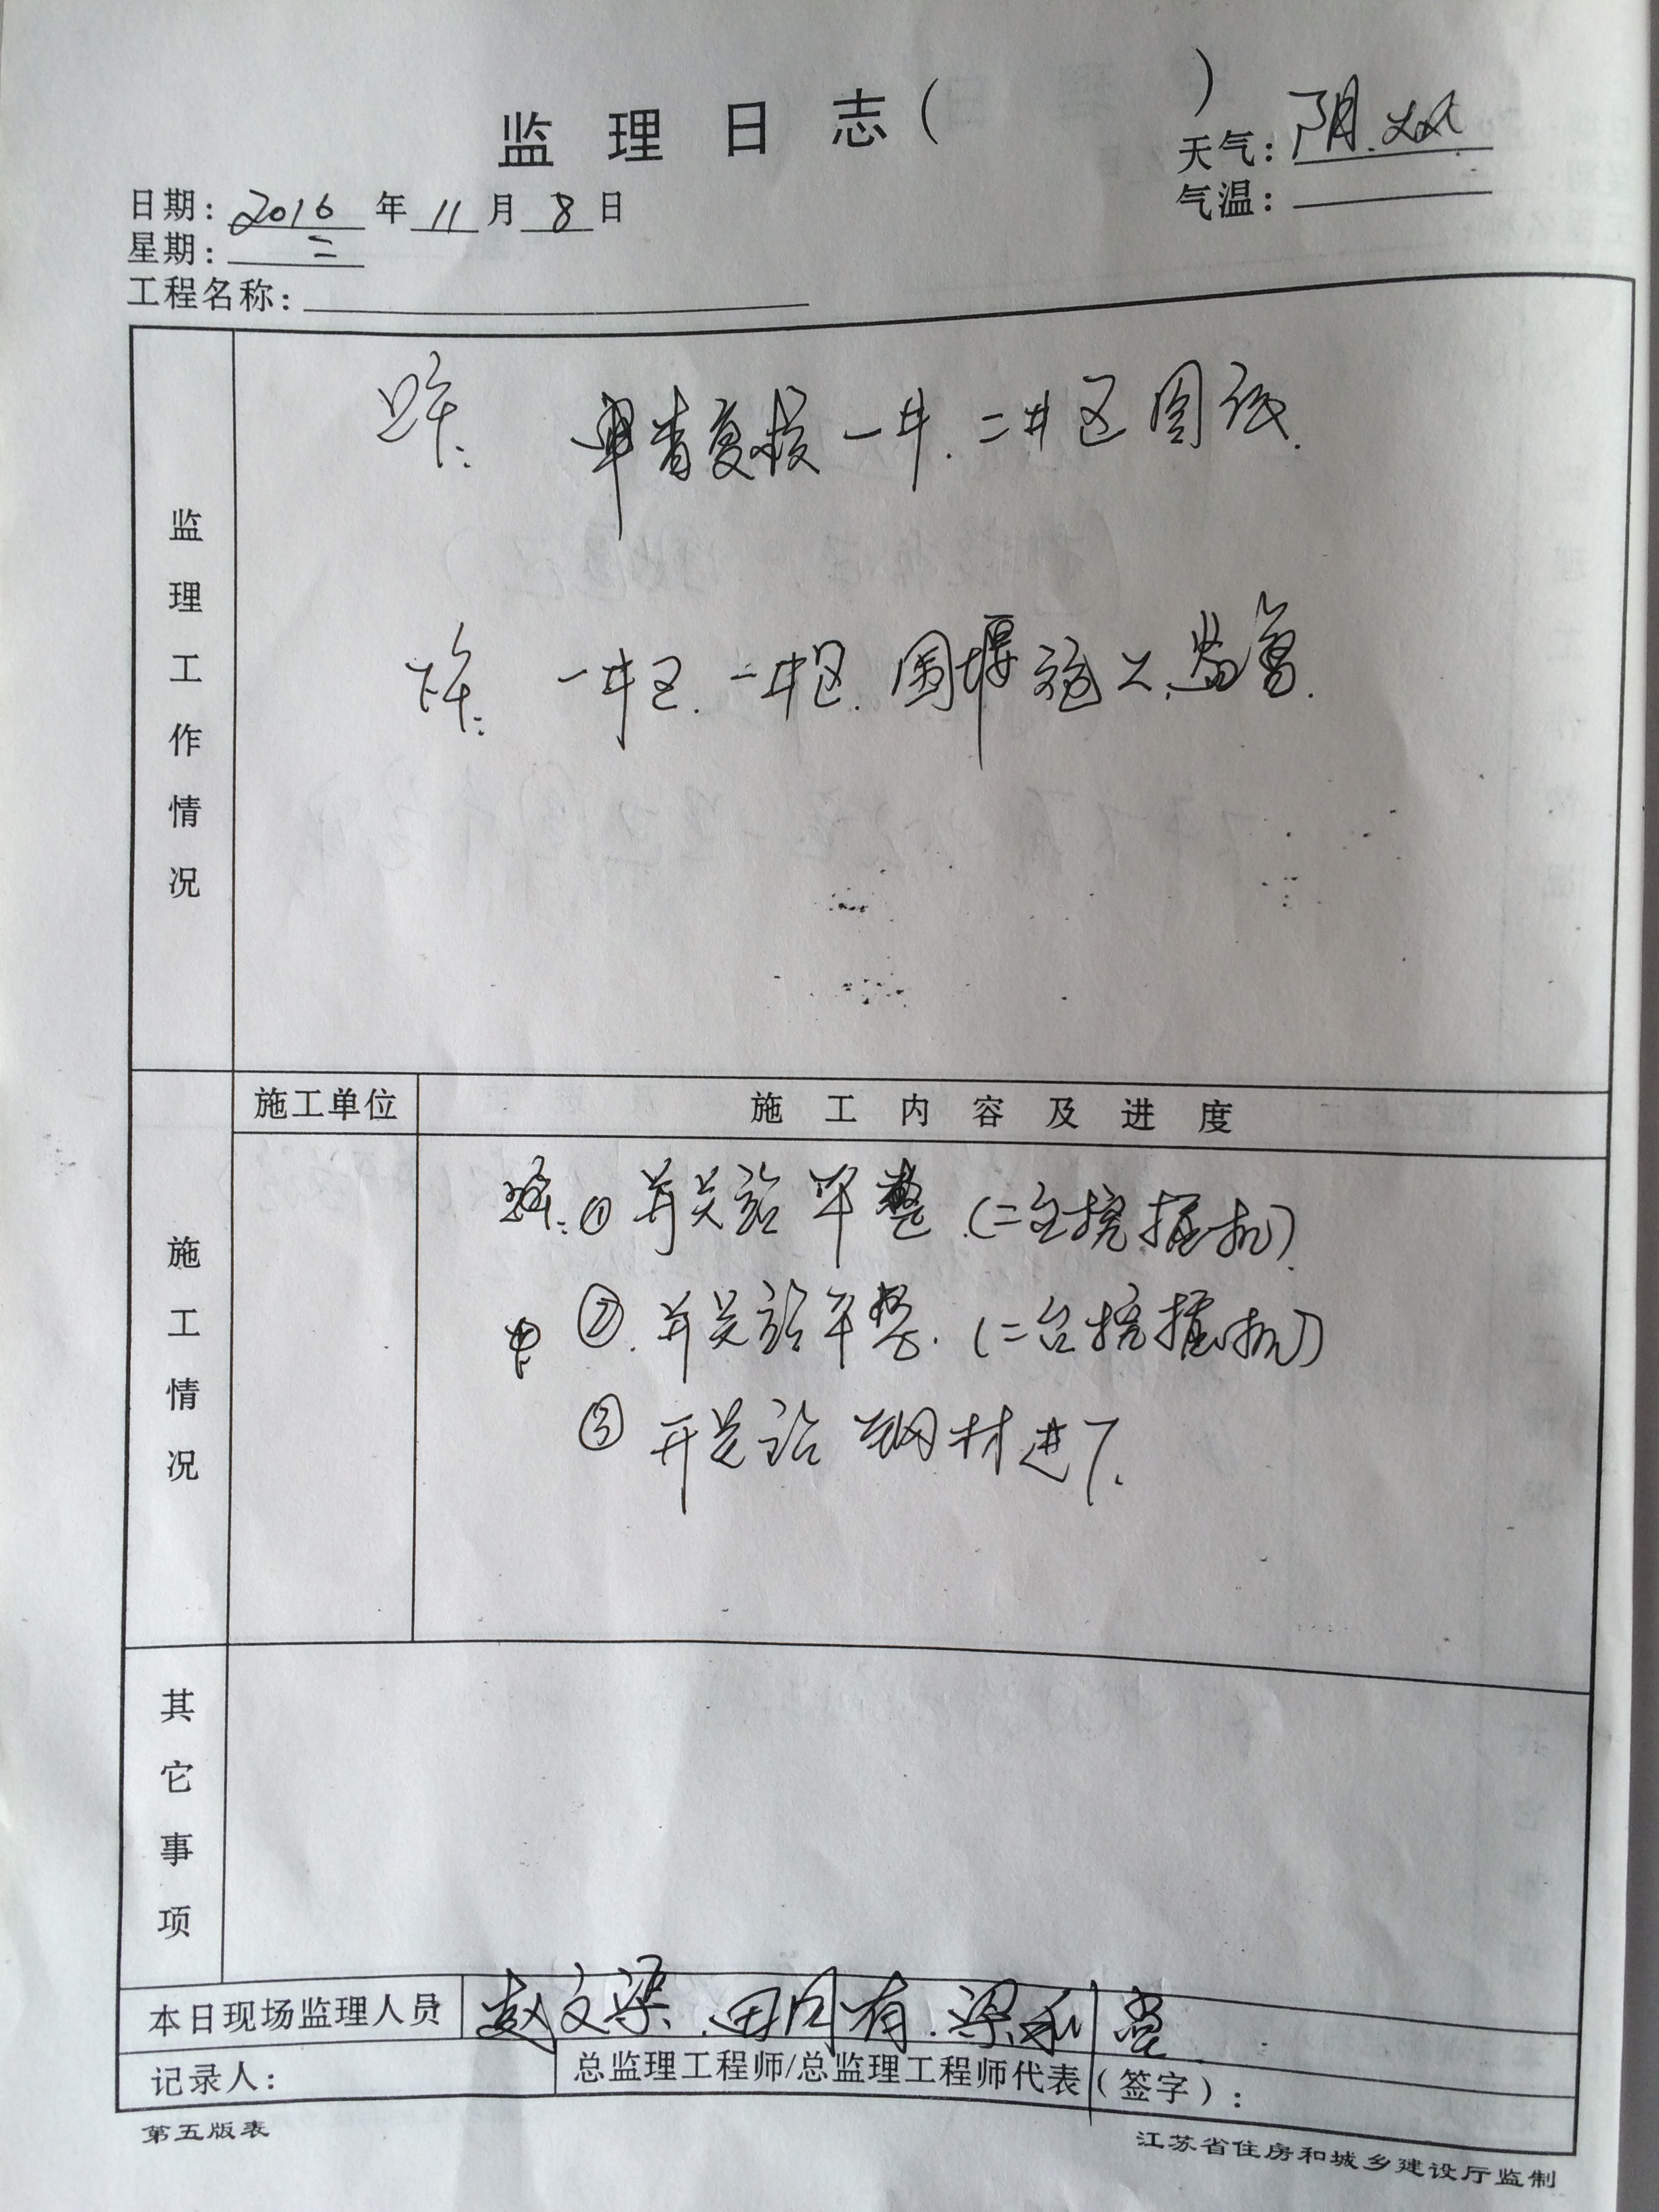 监理日志（ ）
天气：阴.大风
气温：
日期：2016年11月8日
星期：二
工程名称：
监理工作情况
上午: 复核一井.二井区图纸.
下午: 一井区.二井区.围堰施工.
施工单位
施工内容及进度
施工情况
上午:①开关站平整(二台挖掘机)
②.开关站平整.(二台挖掘机)
③开关站 钢材进了.
其它事项
本日现场监理人员
赵文梁.田同有.梁利
记录人：
总监理工程师/总监理工程师代表（签字）：
第五版表
江苏省住房和城乡建设厅监制